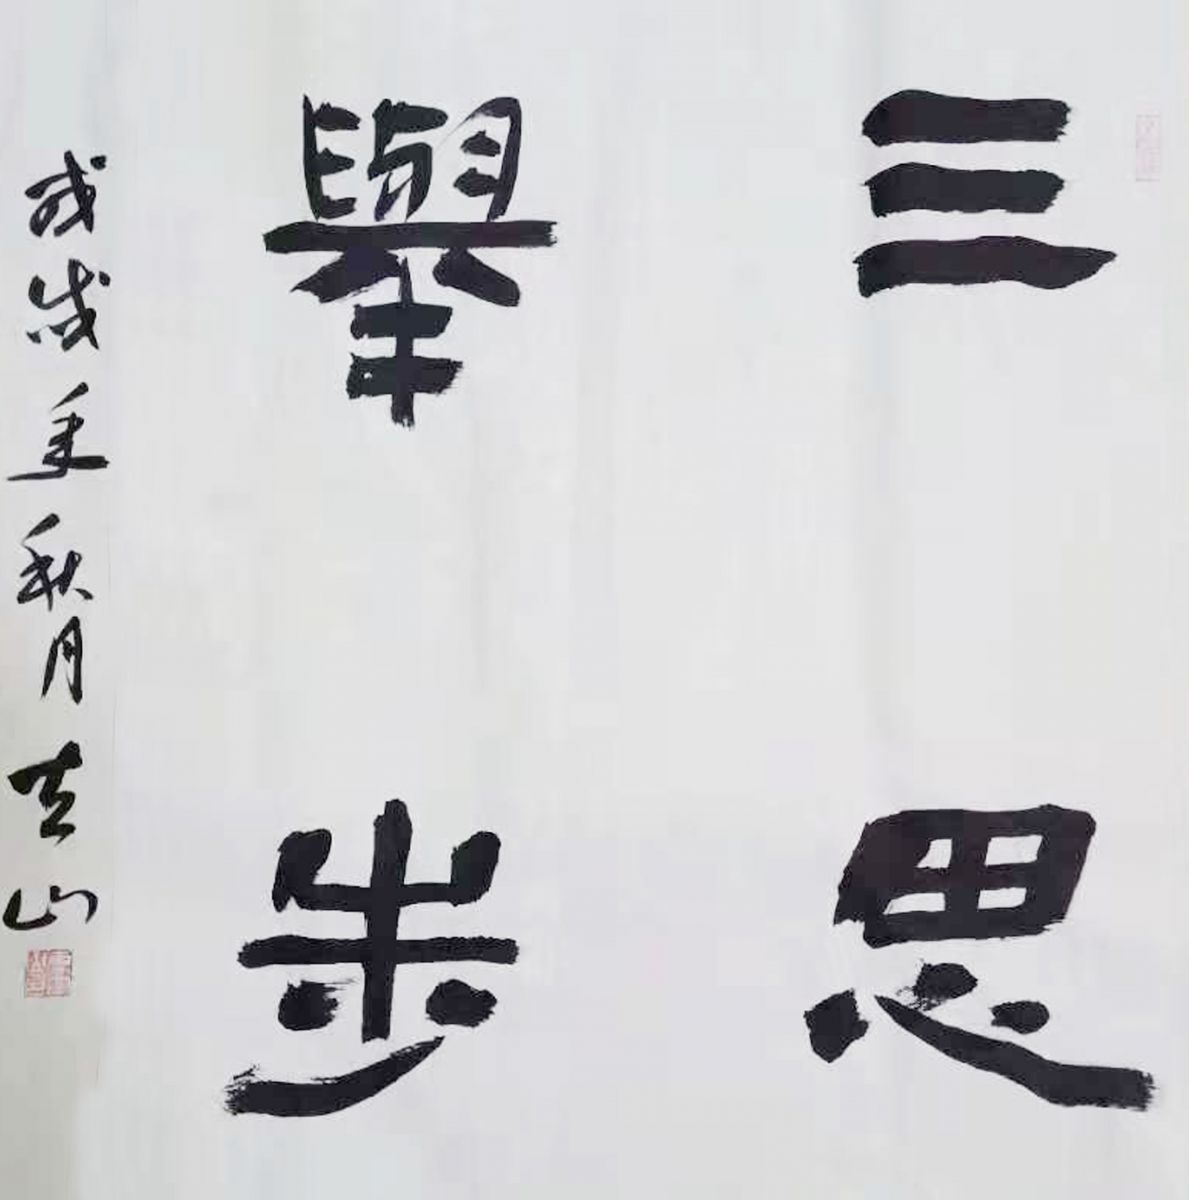 三思
舉步
戊戌年秋月 山